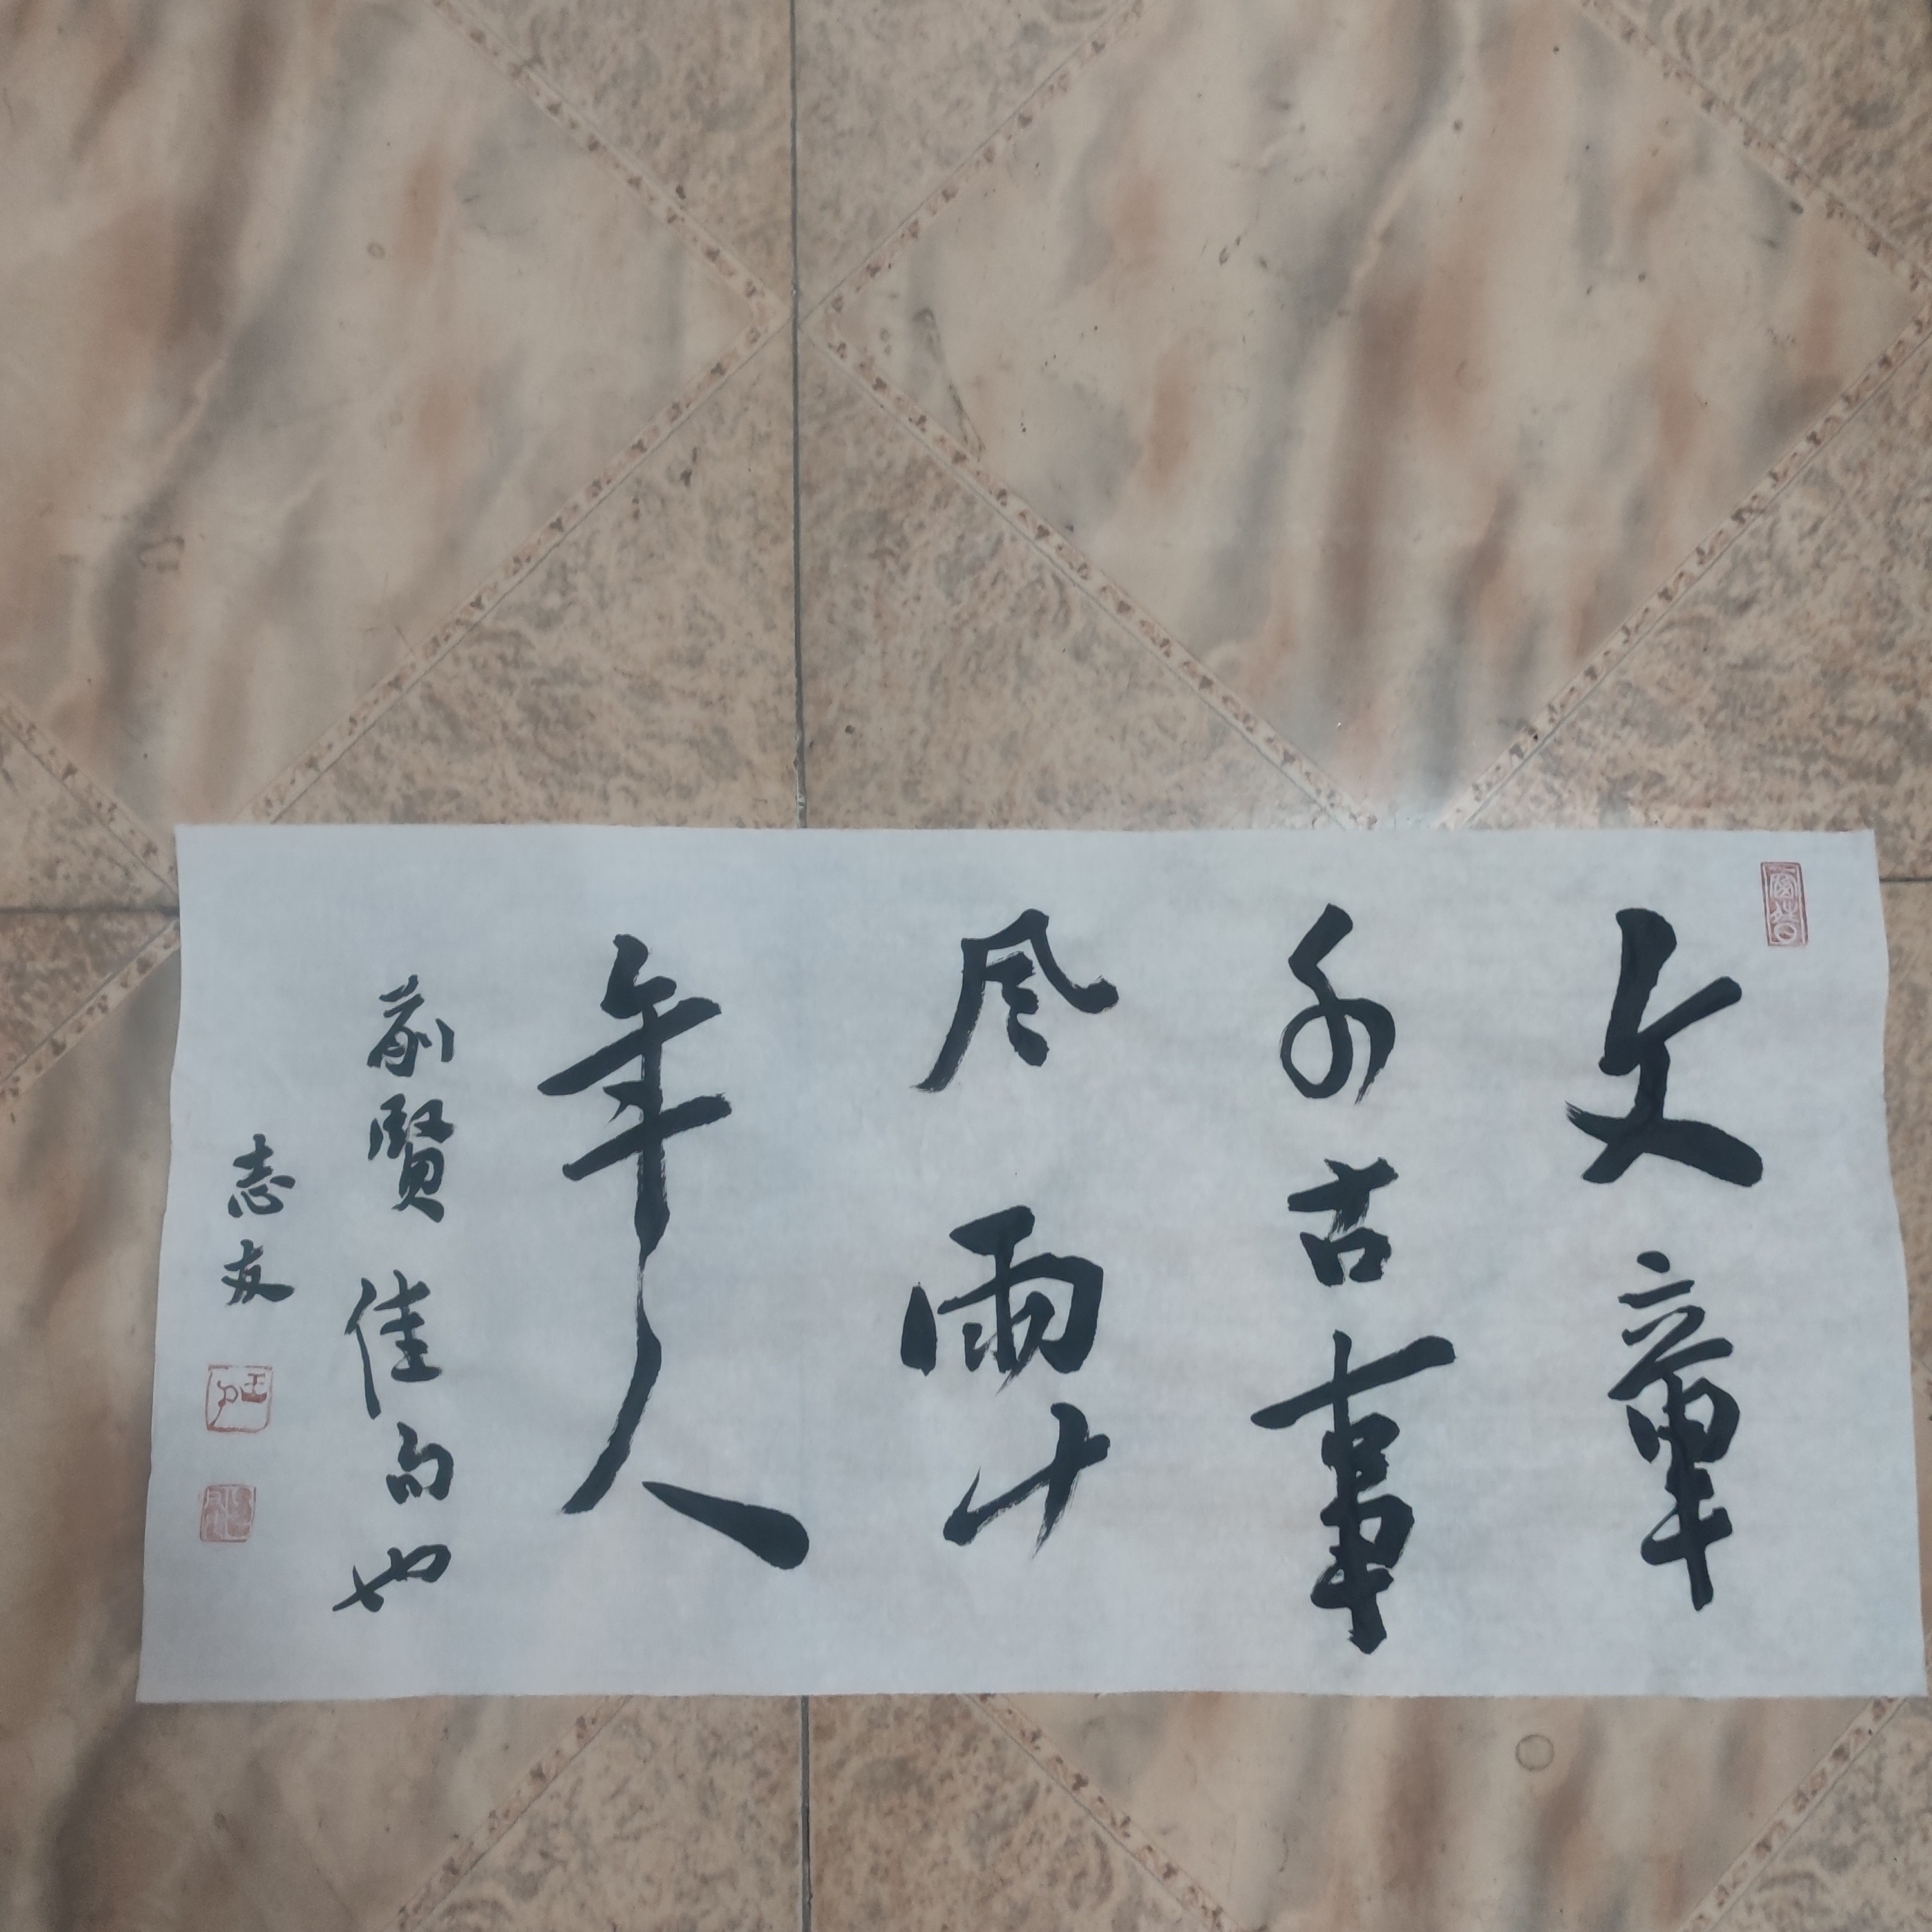 文章
千古事
风雨十
年人
前賢佳句也
志友